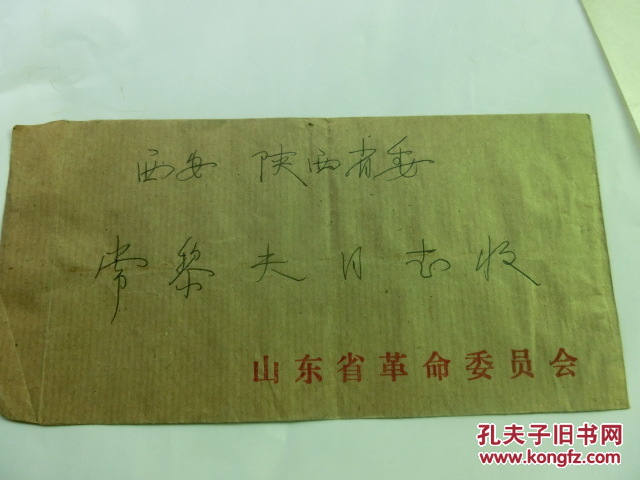 西安 陕西省委
常黎夫同志收
山东省革命委员会
孔夫子旧书网
www.kongfz.com